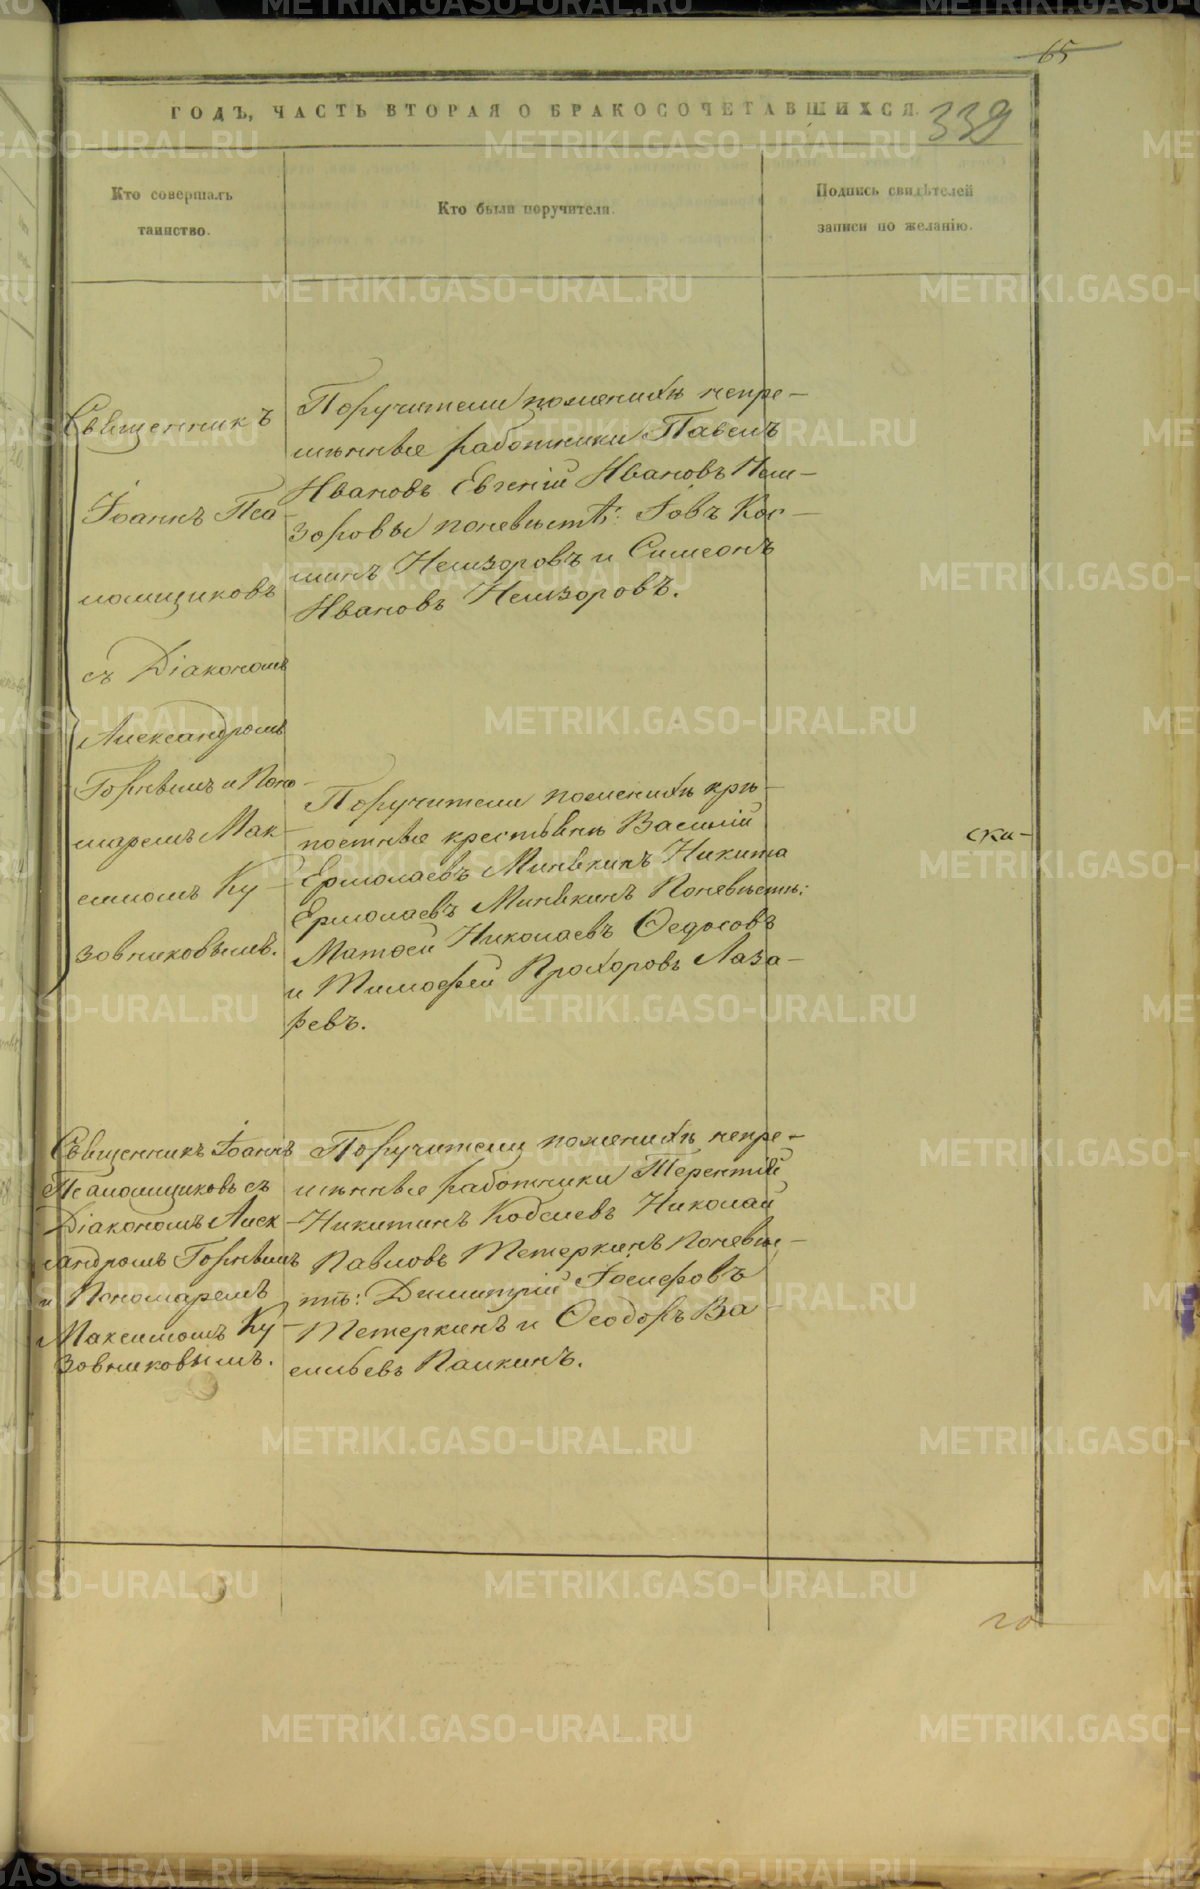 65
ГОДЪ, ЧАСТЬ ВТОРАЯ О БРАКОСОЧЕТАВШИХСЯ.
339
Кто совершалъ
таинство.
Кто были поручители.
Подпись свидѣтелей
записи по желанію.
Священникъ
Іоаннъ Пса-
ломщиковъ
съ Діакономъ
Александромъ
Горнымъ и Поно-
маремъ Мак-
симомъ Ку-
зовниковымъ.
Поручители по женихѣ непре-
мѣнные работники Павелъ
Ивановъ Евгеній Ивановъ Нем-
зоровы по невѣстѣ: Іовъ Кос-
минъ Немзоровъ и Симеонъ
Ивановъ Немзоровъ.
Поручители по женихѣ крѣ-
постные крестьянѣ Василій
Ермолаевъ Минькинъ Никита
Ермолаевъ Минькинъ По невѣстѣ:
Матѳей Николаевъ Ѳедосовъ
и Тимофей Прохоровъ Лаза-
ревъ.
ска-
Священникъ Іоаннъ
Псаломщиковъ съ
Діакономъ Алек-
сандромъ Горнымъ
и Пономаремъ
Максимомъ Ку-
зовниковымъ.
Поручители по женихѣ непре-
мѣнные работники Терентій
Никитинъ Кобелевъ Николай
Павловъ Тетеркинъ По невѣс-
тѣ: Димитрій Іосифовъ
Тетеркинъ и Ѳеодоръ Ва-
сильевъ Палкинъ.
го
METRIKI.GASO-URAL.RU